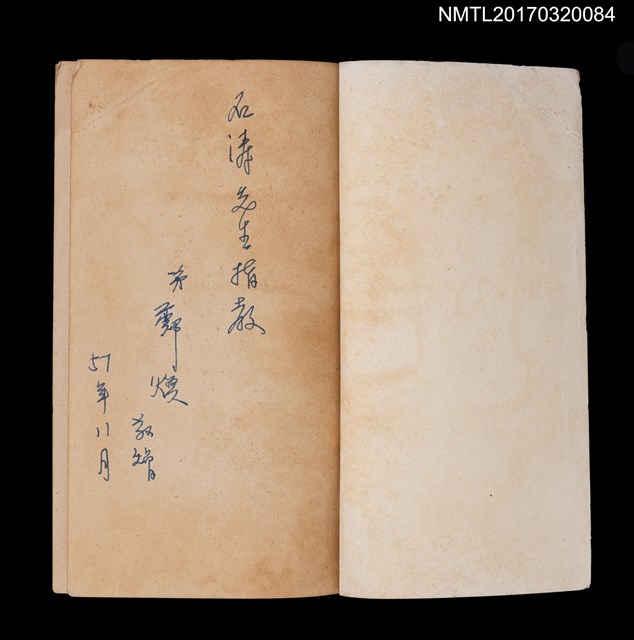 NMTL20170320084
石濤先生指教
弟鄭煥
敬贈
57年11月